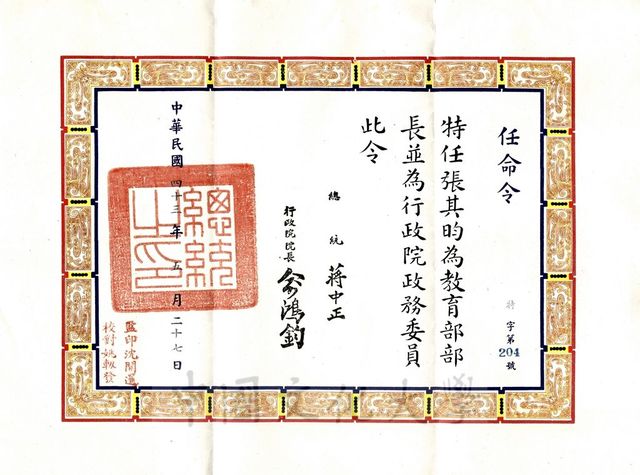 任命令
特字第204號
特任張其昀為教育部部
長並為行政院政務委員
此令
總統 蔣中正
行政院院長 俞鴻鈞
中華民國四十三年五月二十七日
總統之印
監印沈開
校對姚
中國文化大學